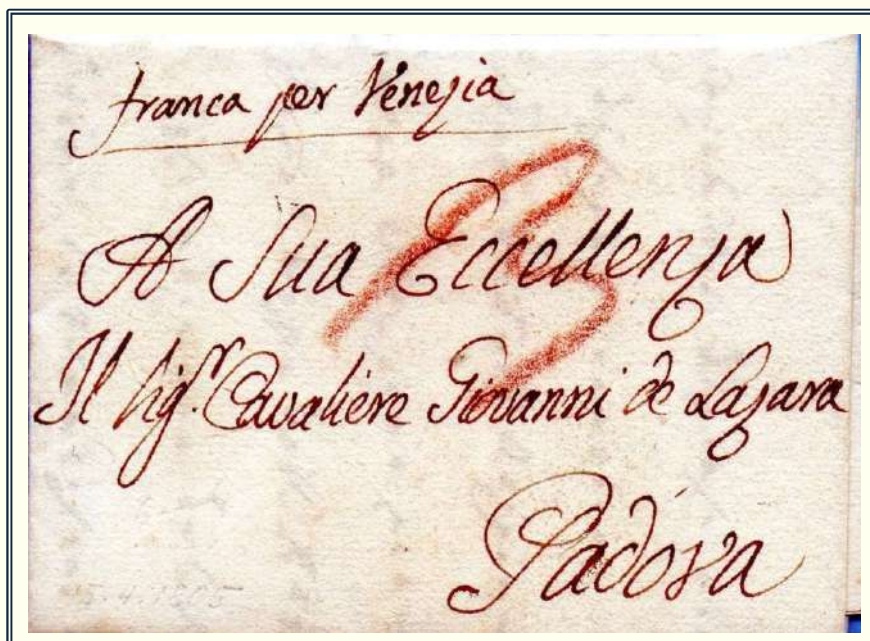 franca per Venezia
A Sua Eccellenza
Il Sigr. Cavaliere Giovanni de Lazara
Padova
3